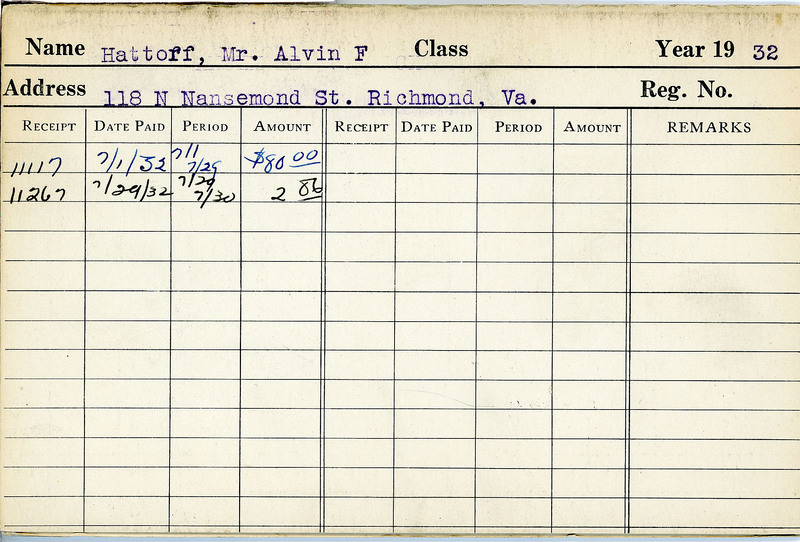 Name Hattorf, Mr. Alvin F Class Year 19 32
Address 118 N Nansemond St. Richmond, Va. Reg. No.
RECEIPT DATE PAID PERIOD AMOUNT RECEIPT DATE PAID PERIOD AMOUNT REMARKS
11117 7/1/32 7/1 7/29 $80 00
11267 7/29/32 7/29 7/30 2 86